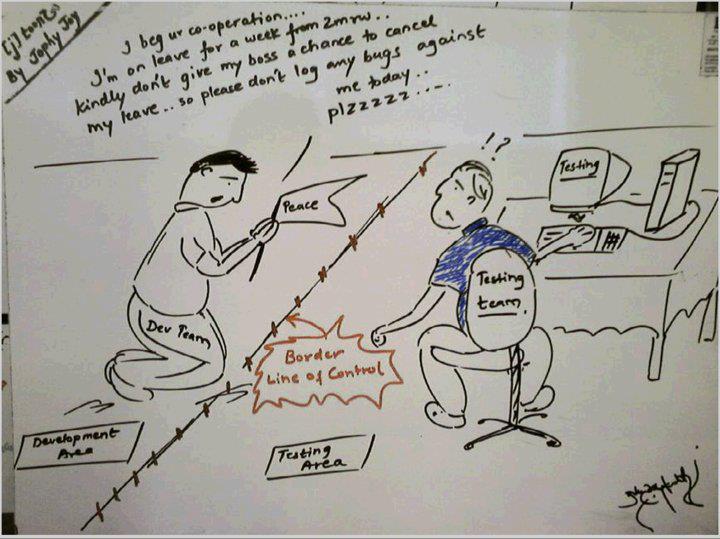 [j]toons
By Jophy Joy
I beg ur co-operation....
I'm on leave for a week from 2mrw..
kindly don't give my boss a chance to cancel
my leave.. so please don't log any bugs against
me today..
plzzzzz.....
!?
Peace
Testing
Testing
team
Dev Team
Border
Line of Control
Development
Area
Testing
Area